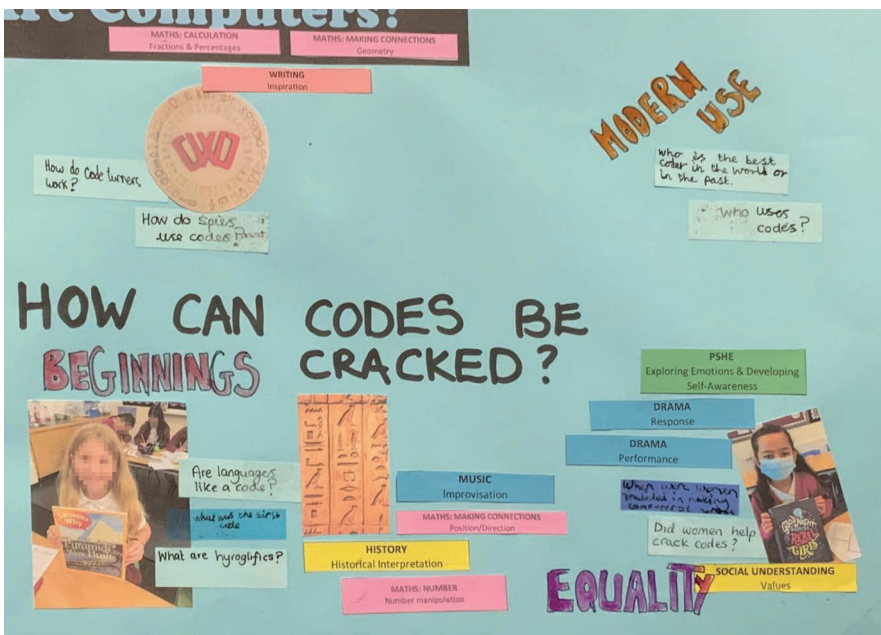 Are Computers?
MATHS: CALCULATION
Fractions & Percentages
MATHS: MAKING CONNECTIONS
Geometry
WRITING
Inspiration
MODERN
USE
How do Code turners
work?
How do spies
use codes?
who is the best
coder in the world or
in the past.
who uses
codes?
HOW CAN CODES BE
CRACKED?
BEGINNINGS
PSHE
Exploring Emotions & Developing
Self-Awareness
DRAMA
Response
DRAMA
Performance
Are languages
like a code?
what was the first
code
What are hyroglifics?
MUSIC
Improvisation
MATHS: MAKING CONNECTIONS
Position/Direction
HISTORY
Historical Interpretation
MATHS: NUMBER
Number manipulation
When were women
included in making
Did women help
crack codes?
GOODNIGHT
REBEL
GIRLS
EQUALITY
SOCIAL UNDERSTANDING
Values